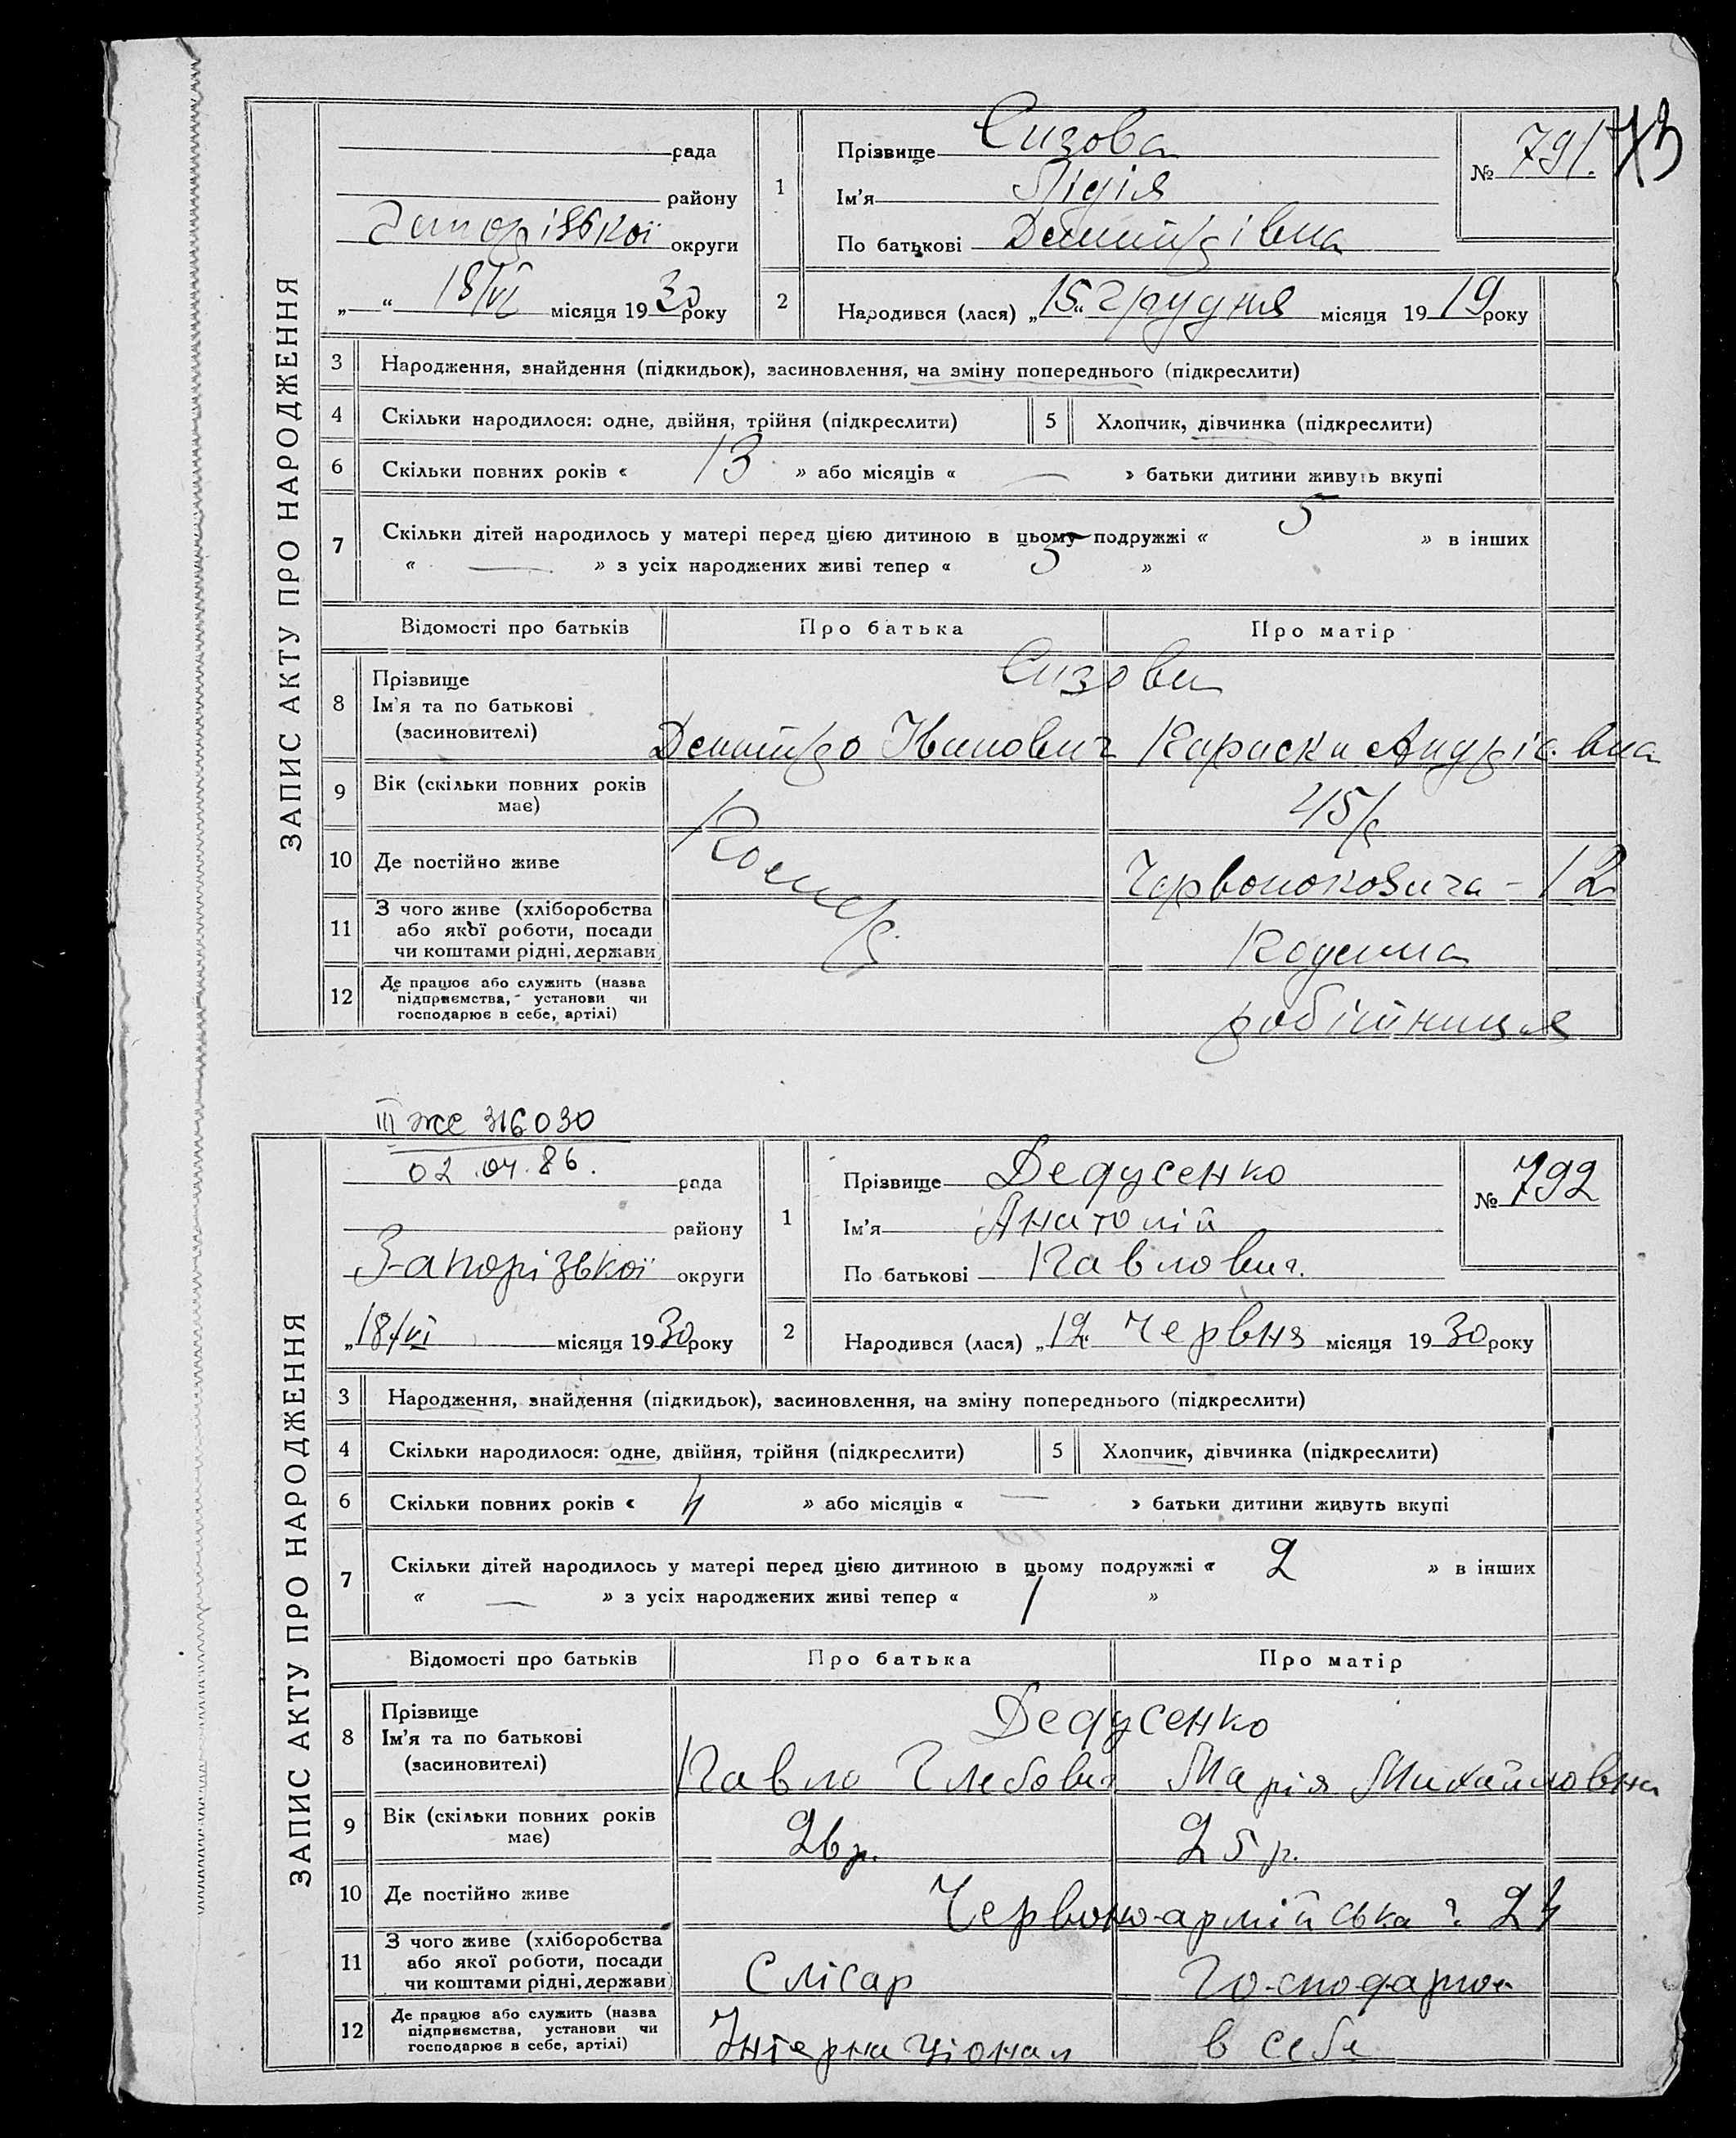 73
ЗАПИС АКТУ ПРО НАРОДЖЕННЯ
рада
району
Запорізької округи
„ “ 18/VI місяця 1930 року
1
Прізвище Сизова
Ім'я Лідія
По батькові Дмитрівна
№ 791.
2
Народився (лася) „15“ Грудня місяця 1919 року
3 Народження, знайдення (підкидьок), засиновлення, на зміну попереднього (підкреслити)
4 Скільки народилося: одне, двійня, трійня (підкреслити)
5 Хлопчик, дівчинка (підкреслити)
6 Скільки повних років « 13 » або місяців « — » батьки дитини живуть вкупі
7 Скільки дітей народилось у матері перед цією дитиною в цьому подружжі « 5 » в інших
« — » з усіх народжених живі тепер « 5 »
Відомості про батьків Про батька Про матір
8 Прізвище
Ім'я та по батькові
(засиновителі)
Сизови
Дмитро Іванович Андріївна
9 Вік (скільки повних років має)
Помер
45р
10 Де постійно живе
12
11 З чого живе (хліборобства
або якої роботи, посади
чи коштами рідні, держави)
12 Де працює або служить (назва
підприємства, установи чи
господарює в себе, артілі)
робітниця
III ЖС 316030
02.04.86.
ЗАПИС АКТУ ПРО НАРОДЖЕННЯ
рада
району
Запорізької округи
„18/VI місяця 1930 року
1
Прізвище Дедусенко
Ім'я Анатолій
По батькові Павлович.
№ 792
2
Народився (лася) „12“ Червня місяця 1930 року
3 Народження, знайдення (підкидьок), засиновлення, на зміну попереднього (підкреслити)
4 Скільки народилося: одне, двійня, трійня (підкреслити)
5 Хлопчик, дівчинка (підкреслити)
6 Скільки повних років « 4 » або місяців « — » батьки дитини живуть вкупі
7 Скільки дітей народилось у матері перед цією дитиною в цьому подружжі « 2 » в інших
« — » з усіх народжених живі тепер « 1 »
Відомості про батьків Про батька Про матір
8 Прізвище
Ім'я та по батькові
(засиновителі)
Дедусенко
Павло Глебович Марія Михайловна
9 Вік (скільки повних років має)
26 р. 25 р.
10 Де постійно живе
Червоно-армійська ч. 24
11 З чого живе (хліборобства
або якої роботи, посади
чи коштами рідні, держави)
Слісар Господарює
12 Де працює або служить (назва
підприємства, установи чи
господарює в себе, артілі)
Інтернаціонал в себе